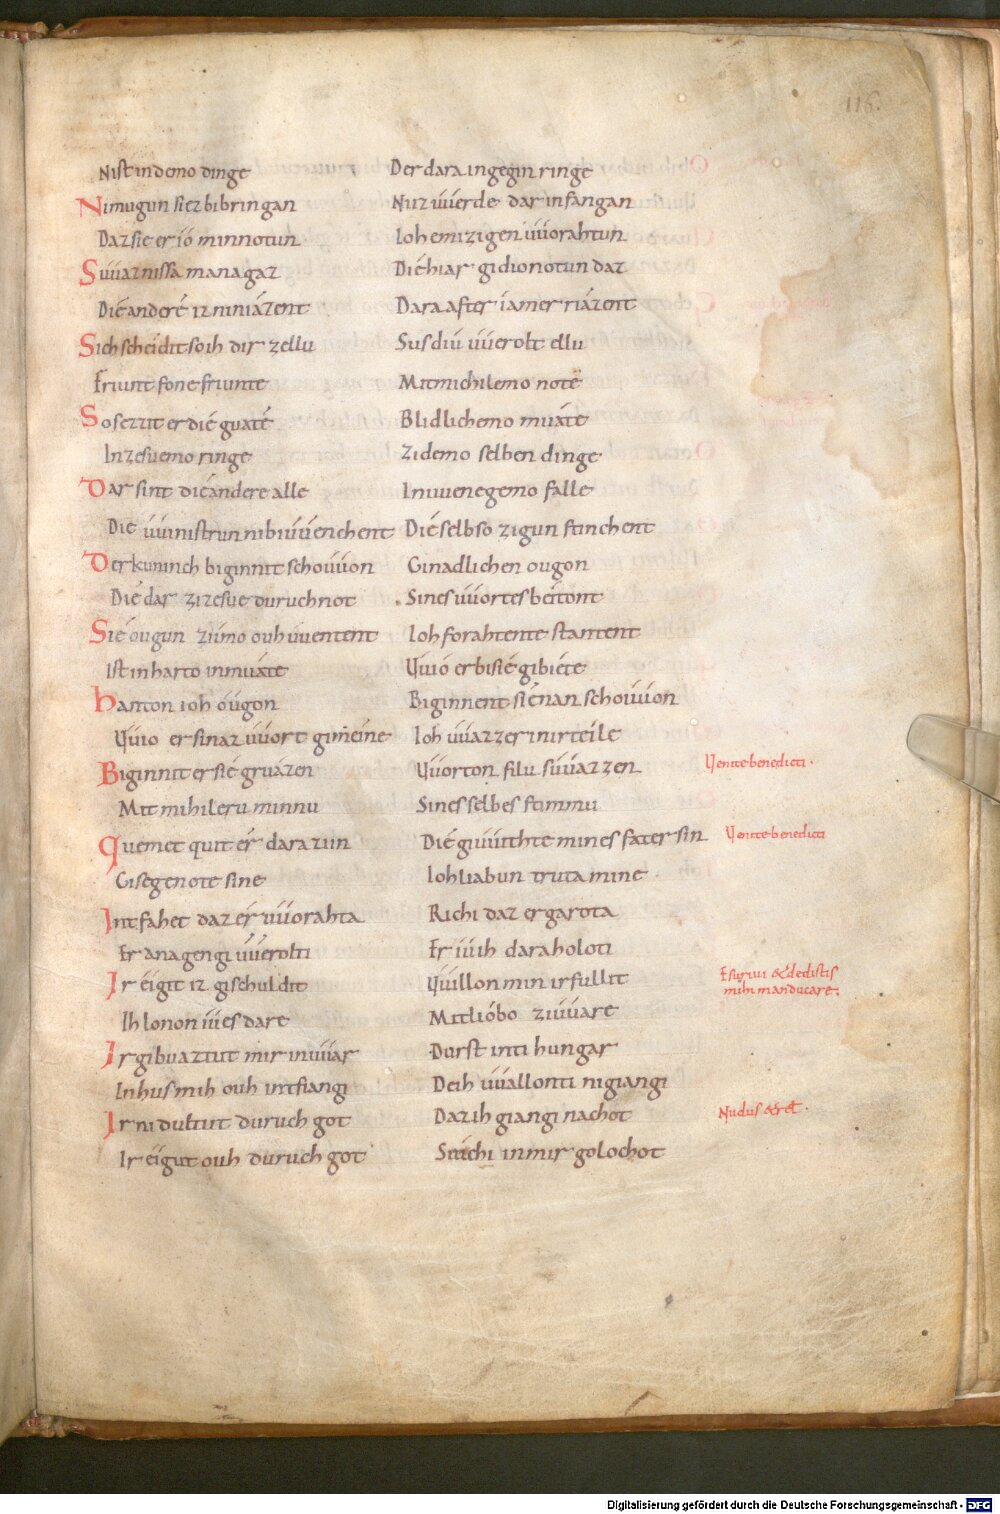 116.
Nist in demo dinge Der dara ingegin ringe
Nimugun siez bibringan Nuz uuerde dar infangan
Daz sie er ió minnotun Ioh emizigen uuorahtun
Suuarnissa managaz Diē hiar gidionotun daz
Diē anderé iz ni niázent Dara after iamer riázent
Sich scheidit so ih dir zellu Sus diu uuerolt ellu
Friunt fone friunte Mit michilemo note
So sezzit er dié guaté Blidlichemo muate
In zesuemo ringe Zi demo selben dinge
Dar sint diē andere alle In uuenegemo falle
Die uuinistrun nibiuuenchent Dié selb so zigun stinchent
Der kuninch biginnit schouuon Ginadlichen ougon
Die dar zi zesue duruch not Sines uuortes beitont
Sié ougun ziimo ouh uuentent Ioh forahtente stantent
Ist in harto in muate Uuió er bi sié gibiete
Hanton ioh óugon Biginnent siē nan schouuon
Uuio er sinaz uuort gimeine Ioh uuaz zer in irteile
Biginnit er sié gruazen Uuorton filu suuazzen Uenite benedicti.
Mit mihileru minnu Sines selbes stimmu
Quemet quit er dara zuin Dié giuuihte mines fater sin Uenite benedicti
Gisegenote sine Ioh liabun truta mine
Intfahet daz er uuorahta Richi daz er garota
Er anagengi uuerolti Er iuih daraholoti
Ir eigit iz gischuldit Uuillon min irfullit Esuriui & dedistis
mihi manducare.
Ih lonon iu es dare Mit lióbo ziuuare
Ir gibuaztut mir in uuar Durst inti hungar
In hus mih ouh intfiangi Deih uuallonti nigiangi
Ir ni dultut duruch got Daz ih giangi nachot Nudus erā &.
Ir eigut ouh duruch got in mir golochot
Digitalisierung gefördert durch die Deutsche Forschungsgemeinschaft - DFG